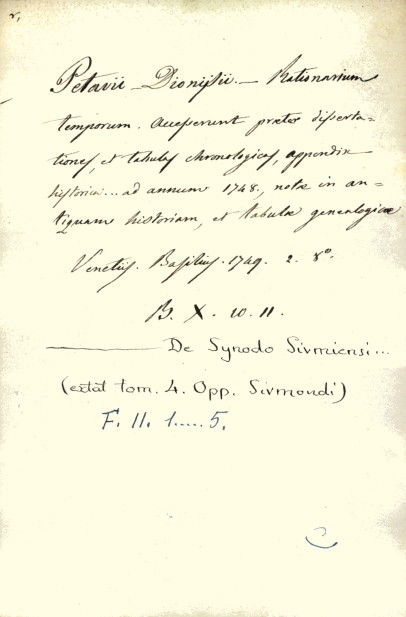 Petavii Dionisii. Rationarium
temporum. Accesserunt præter disserta=
tiones, et tabulas chronologicas, appendix
historica... ad annum 1748, notæ in an=
tiquam historiam, et tabulæ genealogicæ
Venetiis. Basilius. 1749. 2. 8º.
B. X. 10. 11.
De Synodo Sirmiensi...
(extat tom. 4. Opp. Sirmondi)
F. II. 1.....5.